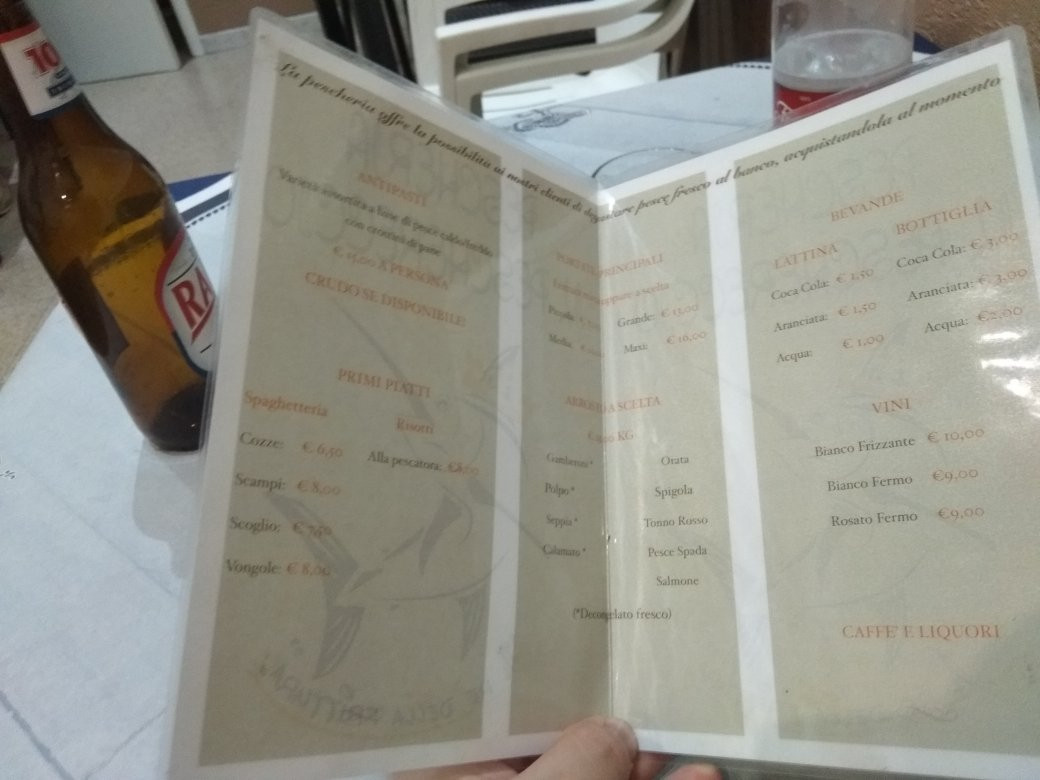 La pescheria offre la possibilita ai nostri clienti di degustare pesce fresco al banco, acquistandola al momento
ANTIPASTI
Varietà assortita a base di pesce caldo/freddo
con crostini di pane
€ 15,00 A PERSONA
CRUDO SE DISPONIBILE
PRIMI PIATTI
Spaghetteria
Cozze: € 6,50
Scampi: € 8,00
Scoglio: € 7,50
Vongole: € 8,00
Risotti
Alla pescatora: €8,00
PRINCIPALI
a scelta
Piccola:
Grande: € 13,00
Media:
Maxi: € 16,00
A SCELTA
KG
Gamberoni*
Polpo*
Seppia*
Calamaro*
Orata
Spigola
Tonno Rosso
Pesce Spada
Salmone
(*Decongelato fresco)
BEVANDE
LATTINA
Coca Cola: € 1,50
Aranciata: € 1,50
Acqua: € 1,00
BOTTIGLIA
Coca Cola: € 3,00
Aranciata: € 3,00
Acqua: €2,00
VINI
Bianco Frizzante € 10,00
Bianco Fermo €9,00
Rosato Fermo €9,00
CAFFE' E LIQUORI
DELLA
10
RA